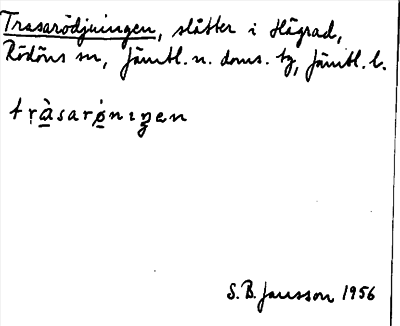 Trasarödjningen, slåtter i Hågrad,
Rödöns sn, Jämtl. n. doms. tg, Jämtl. l.
tràsarǿnıŋen
S. B. Jansson 1956